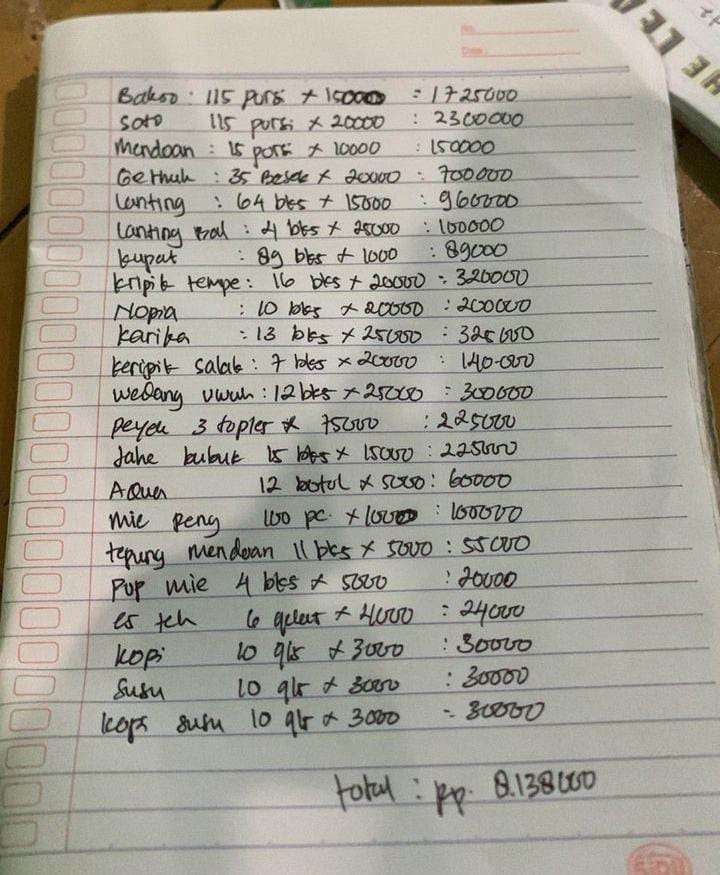 No.
Date :
THE LEA
Bakso : 115 porsi x 15000 = 1725000
Soto 115 porsi x 20000 : 2300000
Mendoan : 15 porsi x 10000 : 150000
Gethuk : 35 Besek x 20000 : 700000
Lanting : 64 bks x 15000 : 960000
Lanting : 4 bks x 25000 : 100000
kupat : 89 bks x 1000 : 89000
kripik tempe : 16 bks x 20000 = 320000
Nopia : 10 bks x 20000 : 200000
karika : 13 bks x 25000 : 325000
keripik salak : 7 bks x 20000 : 140.000
wedang uwuh : 12 bks x 25000 = 300000
peyek 3 topler x 75000 : 225000
Jahe bubuk 15 bks x 15000 : 225000
AQua 12 botol x 5000 : 60000
mie peng 100 pc. x 1000 : 100000
tepung mendoan 11 bks x 5000 : 55000
pop mie 4 bks x 5000 : 20000
es teh 6 gelas x 4000 = 24000
kopi 10 gls x 3000 : 30000
Susu 10 gls x 3000 : 30000
kopi susu 10 gls x 3000 = 30000
total : Rp. 8.138000